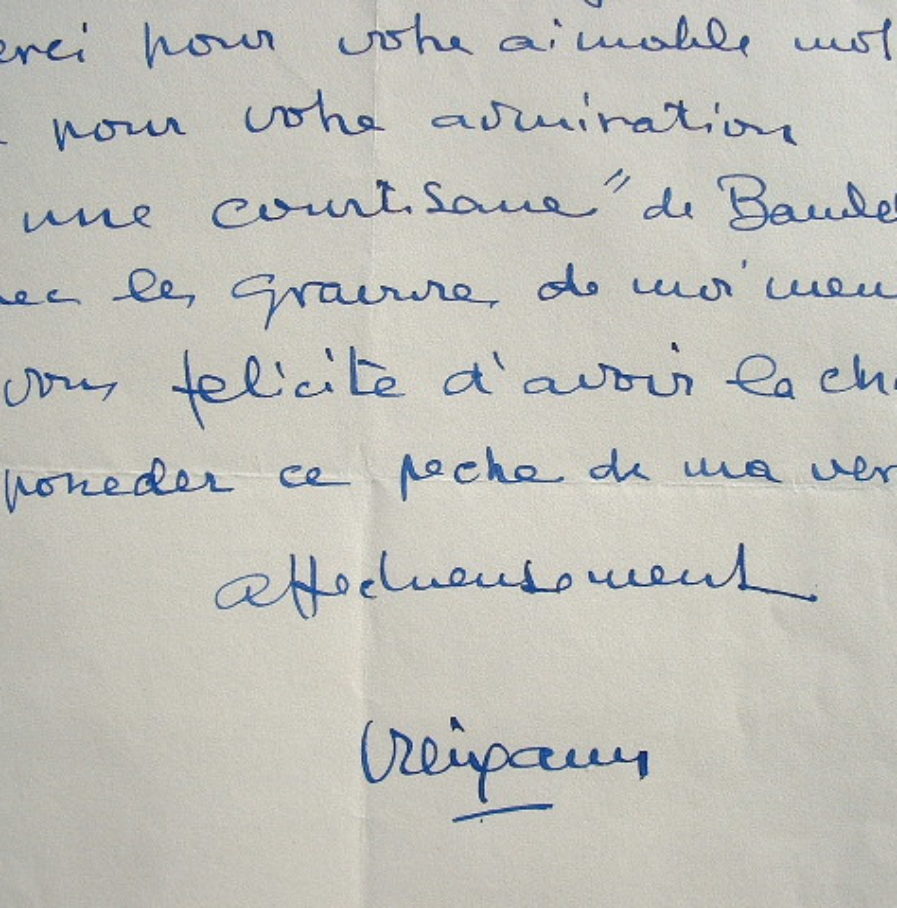 erci pour votre aimable mot
pour votre admiration
une courtisane" de Baude
ec les gravures de moi'meu
vous felicite d'avoir la cha
posseder ce peche de ma ver
affectueusement